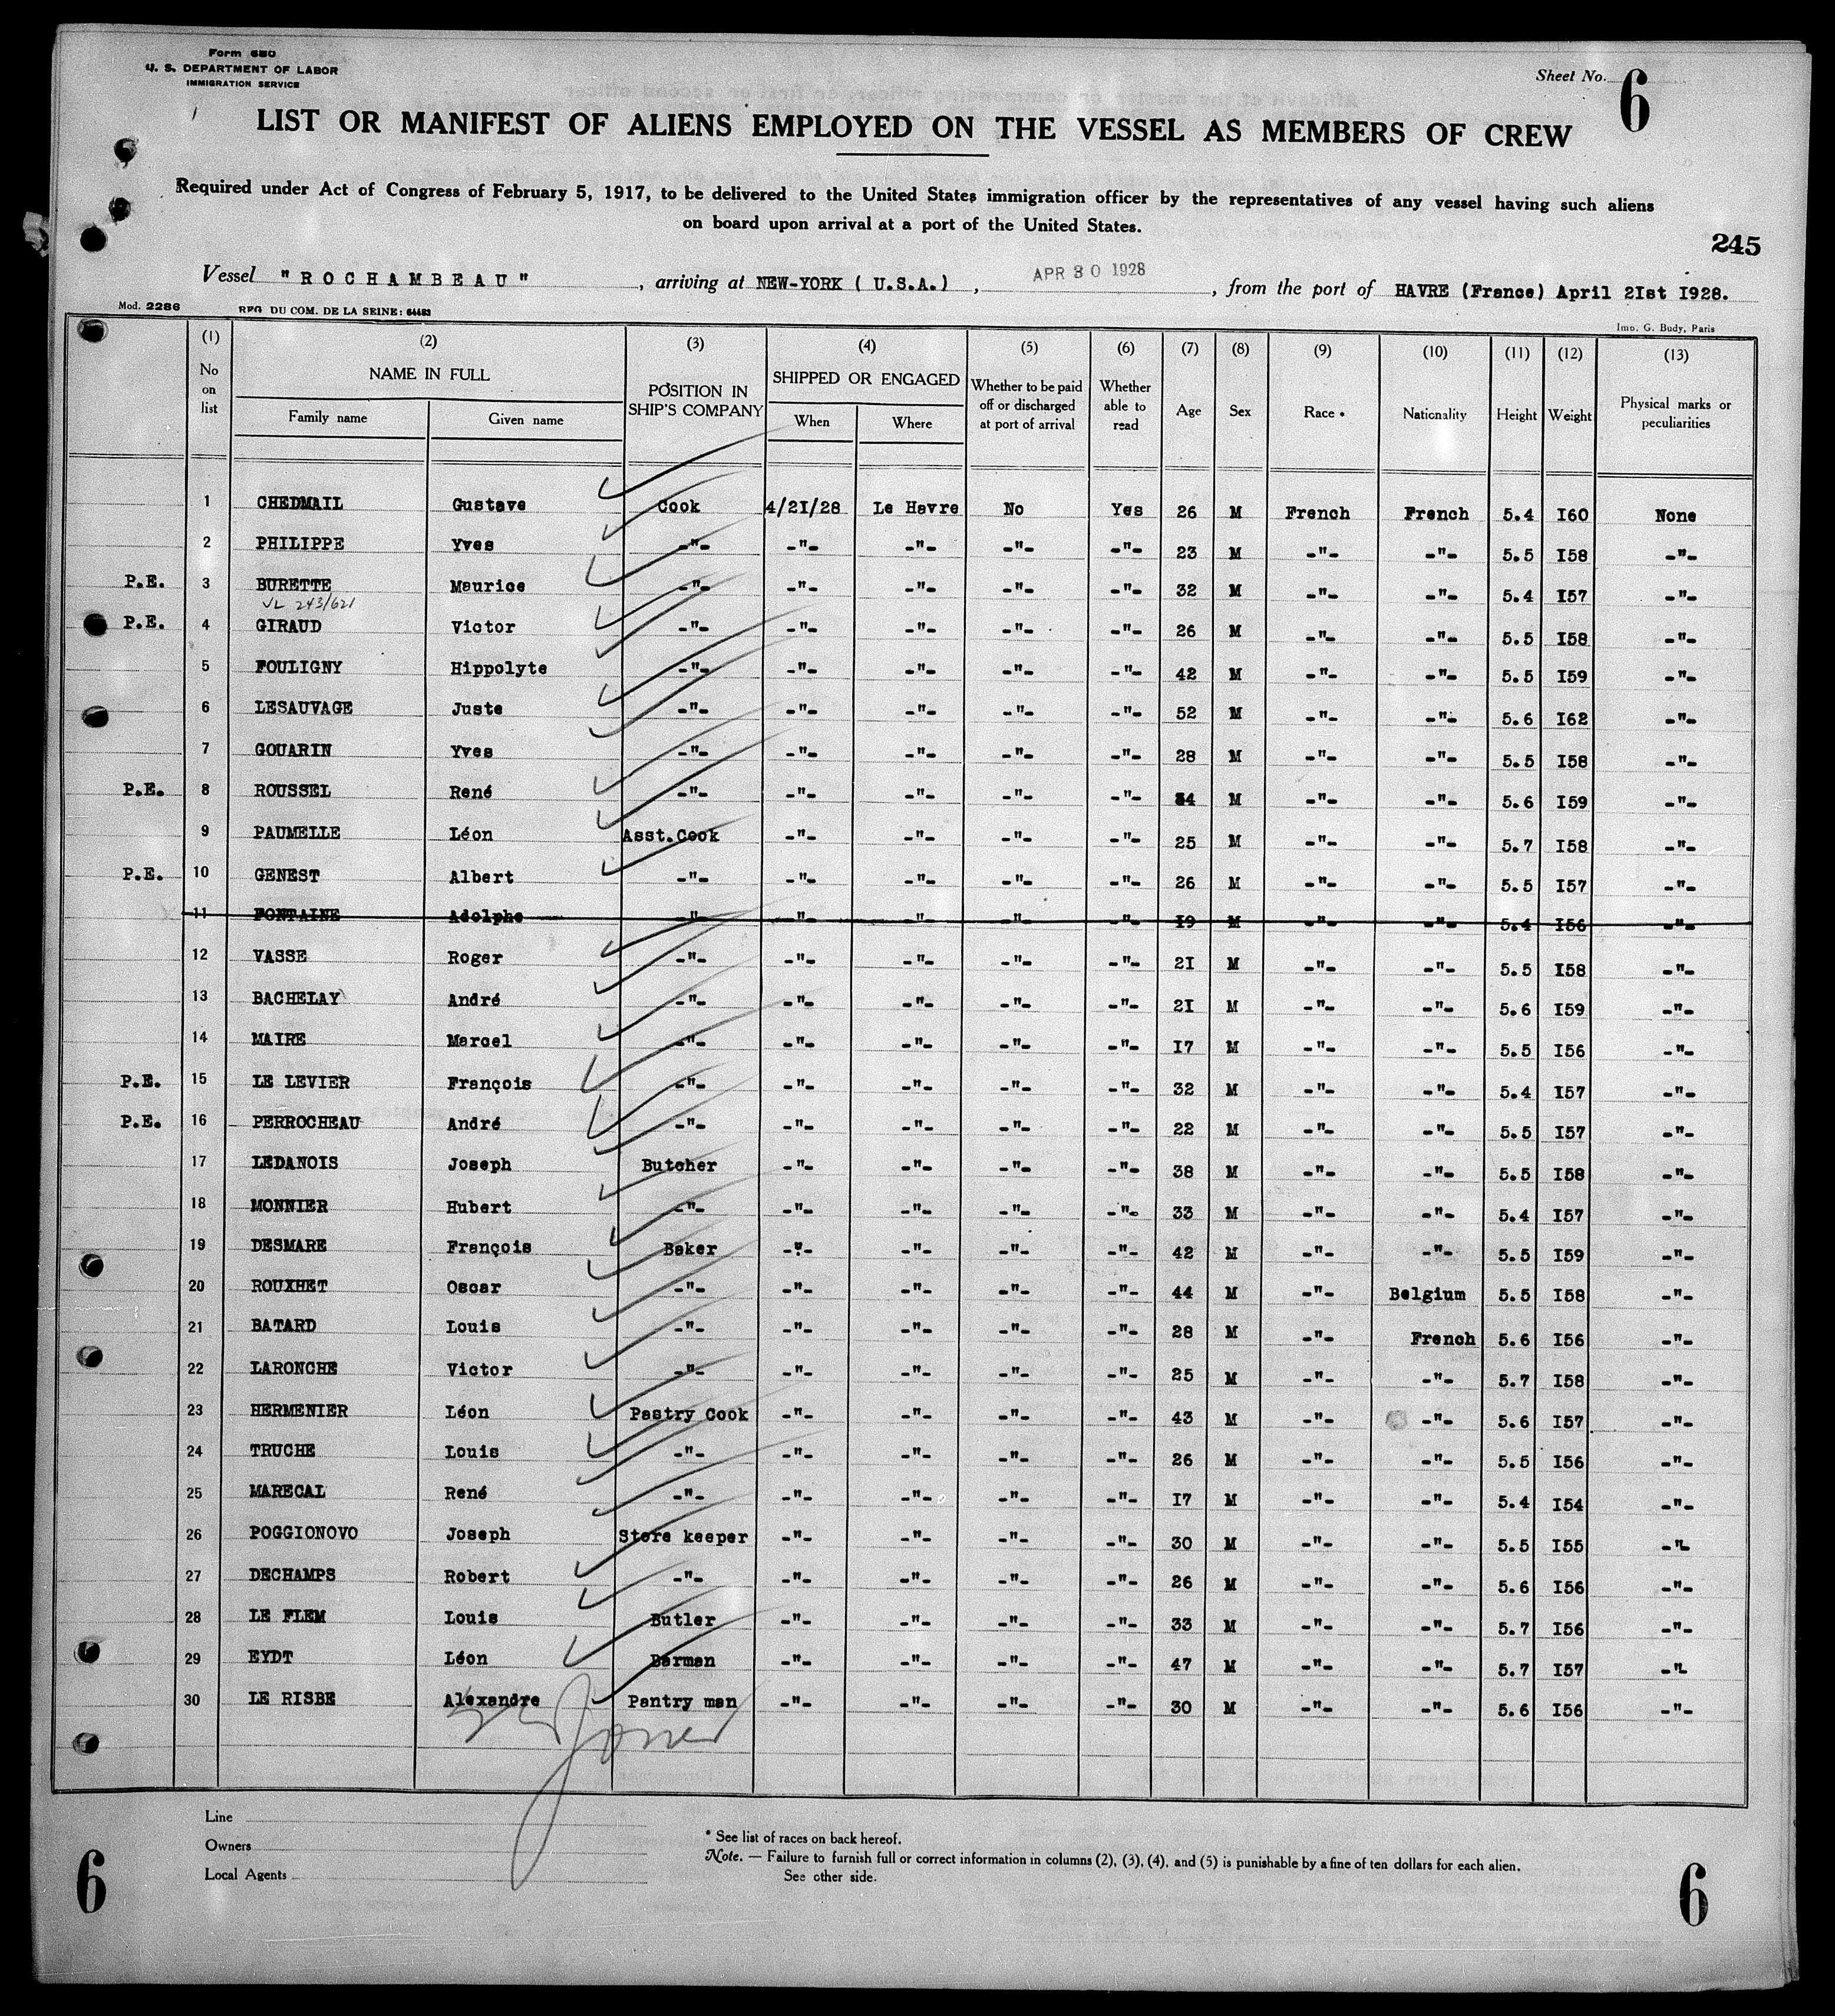 Form 680
U. S. DEPARTMENT OF LABOR
IMMIGRATION SERVICE
Sheet No. 6
LIST OR MANIFEST OF ALIENS EMPLOYED ON THE VESSEL AS MEMBERS OF CREW
Required under Act of Congress of February 5, 1917, to be delivered to the United States immigration officer by the representatives of any vessel having such aliens
on board upon arrival at a port of the United States.
245
Vessel "ROCHAMBEAU", arriving at NEW-YORK ( U.S.A.), APR 30 1928, from the port of HAVRE (France) April 2Ist I928.
Mod. 2286 REG DU COM. DE LA SEINE: 64483 Imp. G. Budy, Paris
(1) (2) (3) (4) (5) (6) (7) (8) (9) (10) (11) (12) (13)
No on list NAME IN FULL Family name Given name POSITION IN SHIP'S COMPANY SHIPPED OR ENGAGED When Where Whether to be paid off or discharged at port of arrival Whether able to read Age Sex Race * Nationality Height Weight Physical marks or peculiarities
1 CHEDMAIL Gustave Cook 4/2I/28 Le Havre No Yes 26 M French French 5.4 I60 None
2 PHILIPPE Yves -"- -"- -"- -"- -"- 23 M -"- -"- 5.5 I58 -"-
P.E. 3 BURETTE Maurice -"- -"- -"- -"- -"- 32 M -"- -"- 5.4 I57 -"-
VL 243/621
P.E. 4 GIRAUD Victor -"- -"- -"- -"- -"- 26 M -"- -"- 5.5 I58 -"-
5 FOULIGNY Hippolyte -"- -"- -"- -"- -"- 42 M -"- -"- 5.5 I59 -"-
6 LESAUVAGE Juste -"- -"- -"- -"- -"- 52 M -"- -"- 5.6 I62 -"-
7 GOUARIN Yves -"- -"- -"- -"- -"- 28 M -"- -"- 5.5 I58 -"-
P.E. 8 ROUSSEL René -"- -"- -"- -"- -"- 34 M -"- -"- 5.6 I59 -"-
9 PAUMELLE Léon Asst.Cook -"- -"- -"- -"- 25 M -"- -"- 5.7 I58 -"-
P.E. 10 GENEST Albert -"- -"- -"- -"- -"- 26 M -"- -"- 5.5 I57 -"-
11 FONTAINE Adolphe -"- -"- -"- -"- -"- I9 M -"- -"- 5.4 I56 -"-
12 VASSE Roger -"- -"- -"- -"- -"- 2I M -"- -"- 5.5 I58 -"-
13 BACHELAY André -"- -"- -"- -"- -"- 2I M -"- -"- 5.6 I59 -"-
14 MAIRE Marcel -"- -"- -"- -"- -"- I7 M -"- -"- 5.5 I56 -"-
P.E. 15 LE LEVIER François -"- -"- -"- -"- -"- 32 M -"- -"- 5.4 I57 -"-
P.E. 16 PERROCHEAU André -"- -"- -"- -"- -"- 22 M -"- -"- 5.5 I57 -"-
17 LEDANOIS Joseph Butcher -"- -"- -"- -"- 38 M -"- -"- 5.5 I58 -"-
18 MONNIER Hubert -"- -"- -"- -"- -"- 33 M -"- -"- 5.4 I57 -"-
19 DESMARE François Baker -"- -"- -"- -"- 42 M -"- -"- 5.5 I59 -"-
20 ROUXHET Oscar -"- -"- -"- -"- -"- 44 M -"- Belgium 5.5 I58 -"-
21 BATARD Louis -"- -"- -"- -"- -"- 28 M -"- French 5.6 I56 -"-
22 LARONCHE Victor -"- -"- -"- -"- -"- 25 M -"- -"- 5.7 I58 -"-
23 HERMENIER Léon Pastry Cook -"- -"- -"- -"- 43 M -"- -"- 5.6 I57 -"-
24 TRUCHE Louis -"- -"- -"- -"- -"- 26 M -"- -"- 5.5 I56 -"-
25 MARECAL René -"- -"- -"- -"- -"- I7 M -"- -"- 5.4 I54 -"-
26 POGGIONOVO Joseph Store keeper -"- -"- -"- -"- 30 M -"- -"- 5.5 I55 -"-
27 DECHAMPS Robert -"- -"- -"- -"- -"- 26 M -"- -"- 5.6 I56 -"-
28 LE FLEM Louis Butler -"- -"- -"- -"- 33 M -"- -"- 5.7 I56 -"-
29 EYDT Léon Barman -"- -"- -"- -"- 47 M -"- -"- 5.7 I57 -"-
30 LE RISBE Alexandre Pantry man -"- -"- -"- -"- 30 M -"- -"- 5.6 I56 -"-
Jones
Line
Owners
Local Agents
* See list of races on back hereof.
Note. — Failure to furnish full or correct information in columns (2), (3), (4), and (5) is punishable by a fine of ten dollars for each alien.
See other side.
6 6